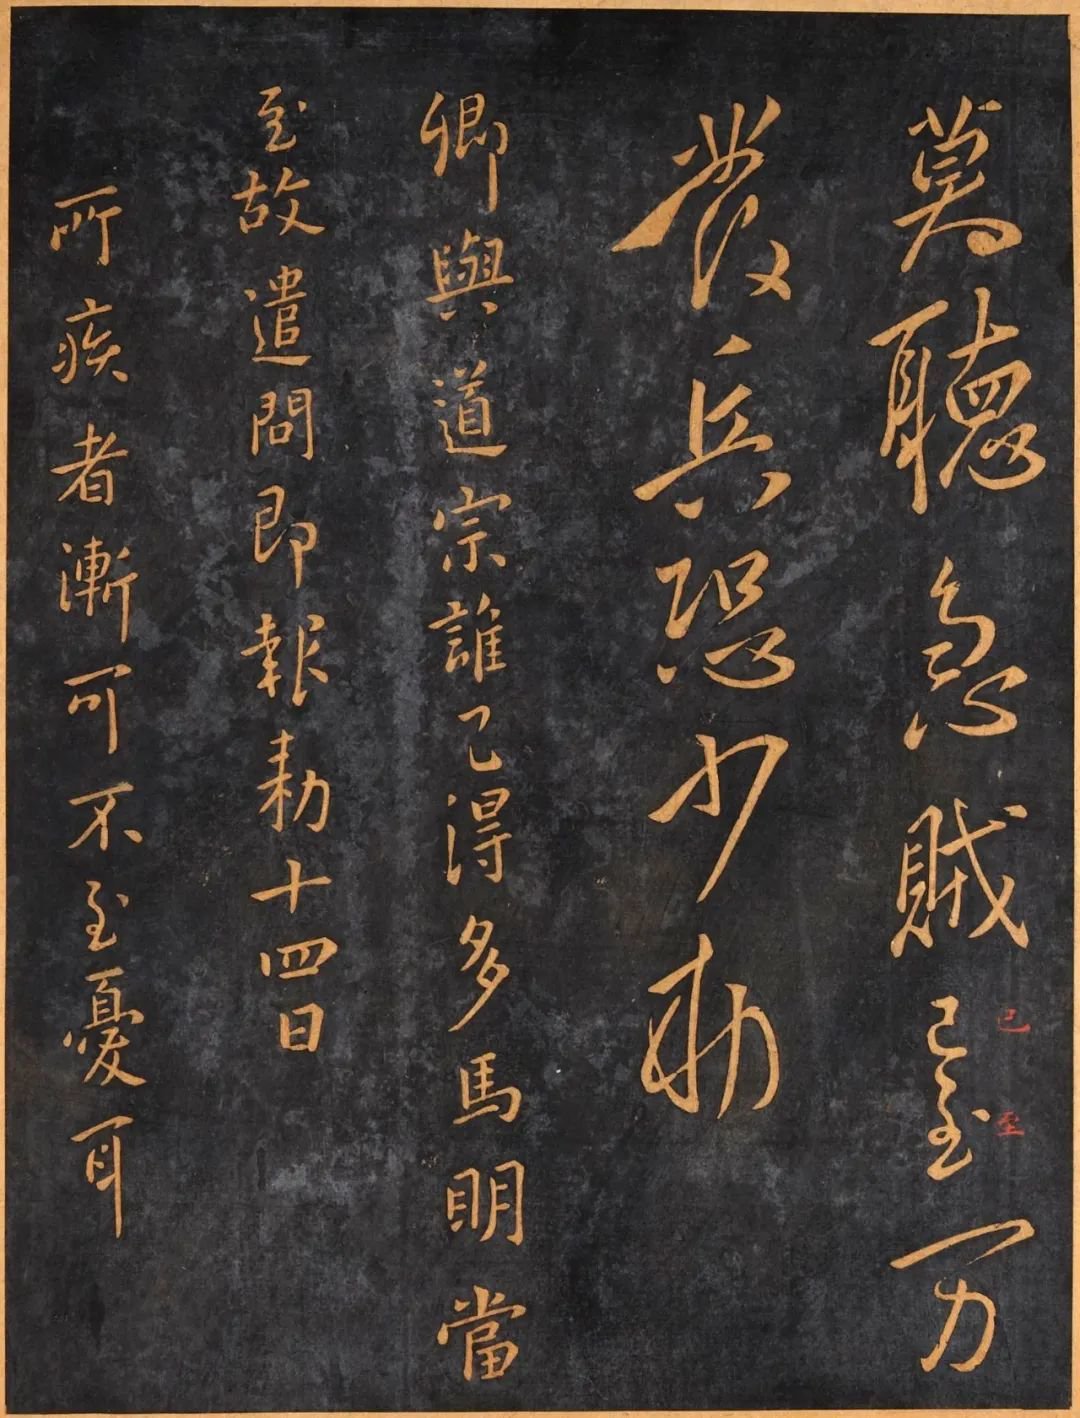 莫聽急賊已至万
已至
發兵恐少勅
卿與道宗誰已得多馬明當
至故遣問即報勅十四日
所疾者漸可不至憂耳